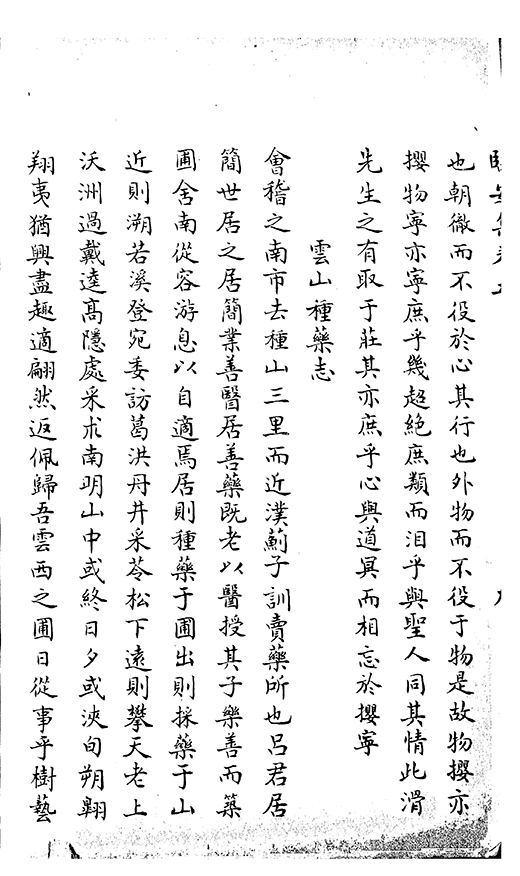 也朝徹而不役於心其行也外物而不役于物是故物攖亦
攖物寧亦寧庶乎幾超絶庶類而泪乎與聖人同其情此滑
先生之有取于莊其亦庶乎心與道冥而相忘於攖寧
雲山種藥志
會稽之南市去種山三里而近漢薊子訓賣藥所也吕君居
簡世居之居簡業善醫居善藥既老以醫授其子樂善而築
圃舍南從容游息以自適焉居則種藥于圃出則採藥于山
近則溯若溪登宛委訪葛洪丹井采苓松下遠則攀天老上
沃洲過戴逵高隱處采朮南明山中或終日夕或浹旬朔翺
翔夷猶興盡趣適翩然返佩歸吾雲西之圃日從事乎樹藝